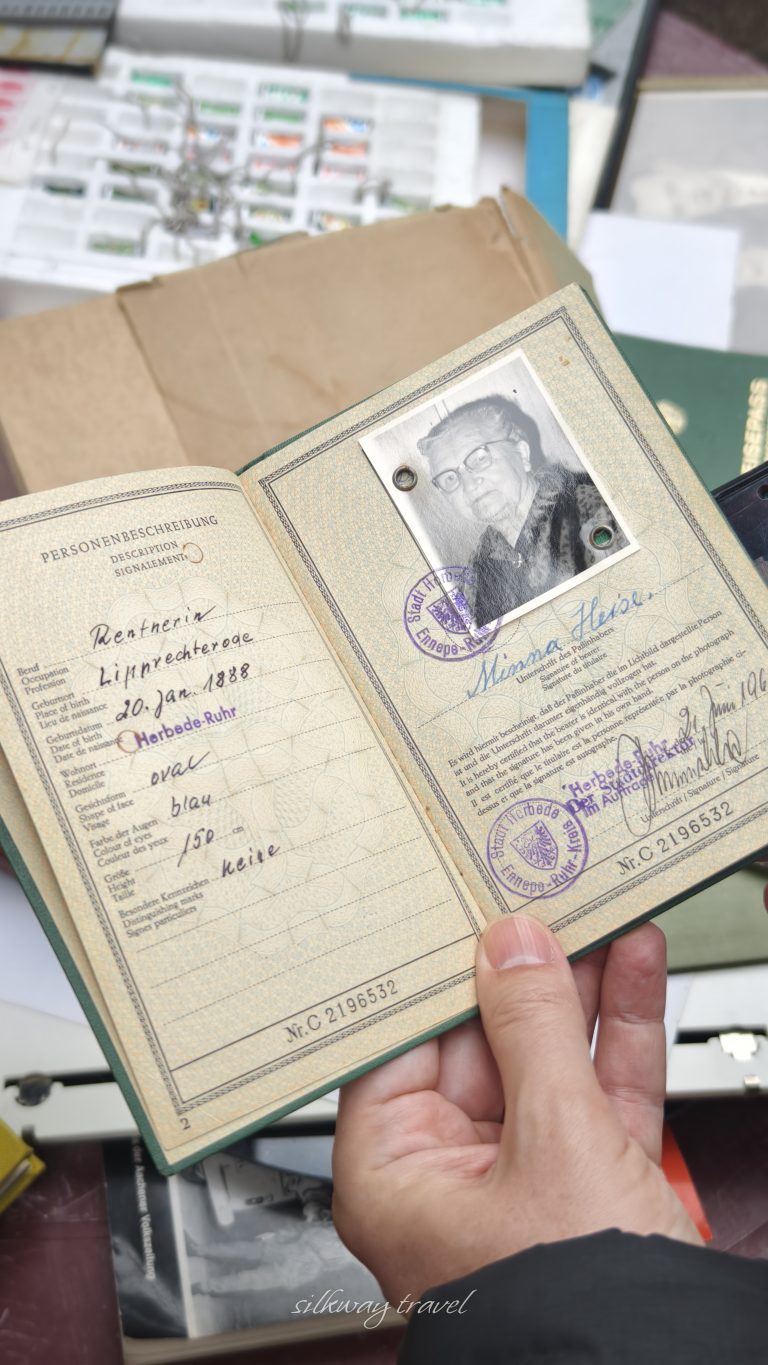 PERSONENBESCHREIBUNG
DESCRIPTION
SIGNALEMENT
Rentnerin
Beruf
Occupation
Profession
Lipprechterode
Geburtsort
Place of birth
Lieu de naissance
20. Jan. 1888
Geburtsdatum
Date of birth
Date de naissance
Herbede-Ruhr
Wohnort
Residence
Domicile
oval
Gesichtsform
Shape of face
Visage
blau
Farbe der Augen
Colour of eyes
Couleur des yeux
150 cm
Größe
Height
Taille
keine
Besondere Kennzeichen
Distinguishing marks
Signes particuliers
Nr. C 2196532
2
Stadt Herbede
Ennepe-Ruhr
Minna Heise.
Unterschrift des Paßinhabers
Signature of bearer
Signature du titulaire
Es wird hiermit bescheinigt, daß der Paßinhaber die im Lichtbild dargestellte Person
ist und die Unterschrift darunter eigenhändig vollzogen hat.
It is hereby certified that the bearer is identical with the person on the photograph
and that the signature has been given in his own hand.
Il est certifié que le titulaire est la personne représentée par la photographie ci-
dessus et que la signature est autographe.
Juni 196
Herbede-Ruhr
Der Stadtdirektor
Im Auftrage
Unterschrift / Signature / Signature
Stadt Herbede
Ennepe-Ruhr-Kreis
Nr. C 2196532
ISEPASS
der Aachener Volkszeitung
silkway travel